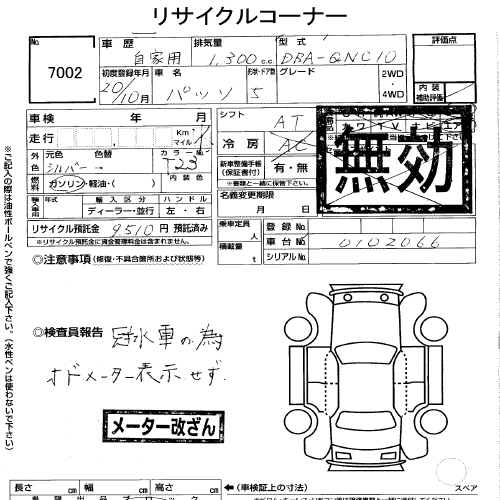 リサイクルコーナー
No. 7002
車歴 自家用 排気量 1,300cc 型式 DBA-QNC10 評価点
初度登録年月 20/10月 車名 パッソ 形状・ドア数 5 グレード 2WD 4WD 内装 補助評価
車検 年 月 シフト AT
走行 Km マイル 冷房 AC
無効
外色 元色 シルバー 色替 → カラーNo. T23 内装色 新車整備手帳(保証書付) 有・無
燃料 ガソリン・軽油・( ) ※書類と一緒に保管下さい。
年式 輸入区分 ハンドル 名義変更期限
ディーラー・並行 左・右 月 日
リサイクル預託金 9510円 預託済み 乗車定員 人 登録No.
※リサイクル預託金に資金管理料金は含まれません。 積載量 t 車台No. 0102066
シリアルNo.
◎注意事項 (修復・不具合箇所および状態等)
◎検査員報告 冠水車の為
オドメーター表示せず.
メーター改ざん
※ご記入の際は油性ボールペンで強くご記入下さい。(水性ペンは使わないで下さい)
長さ cm 幅 cm 高さ cm ←(車検証上の寸法) スペア